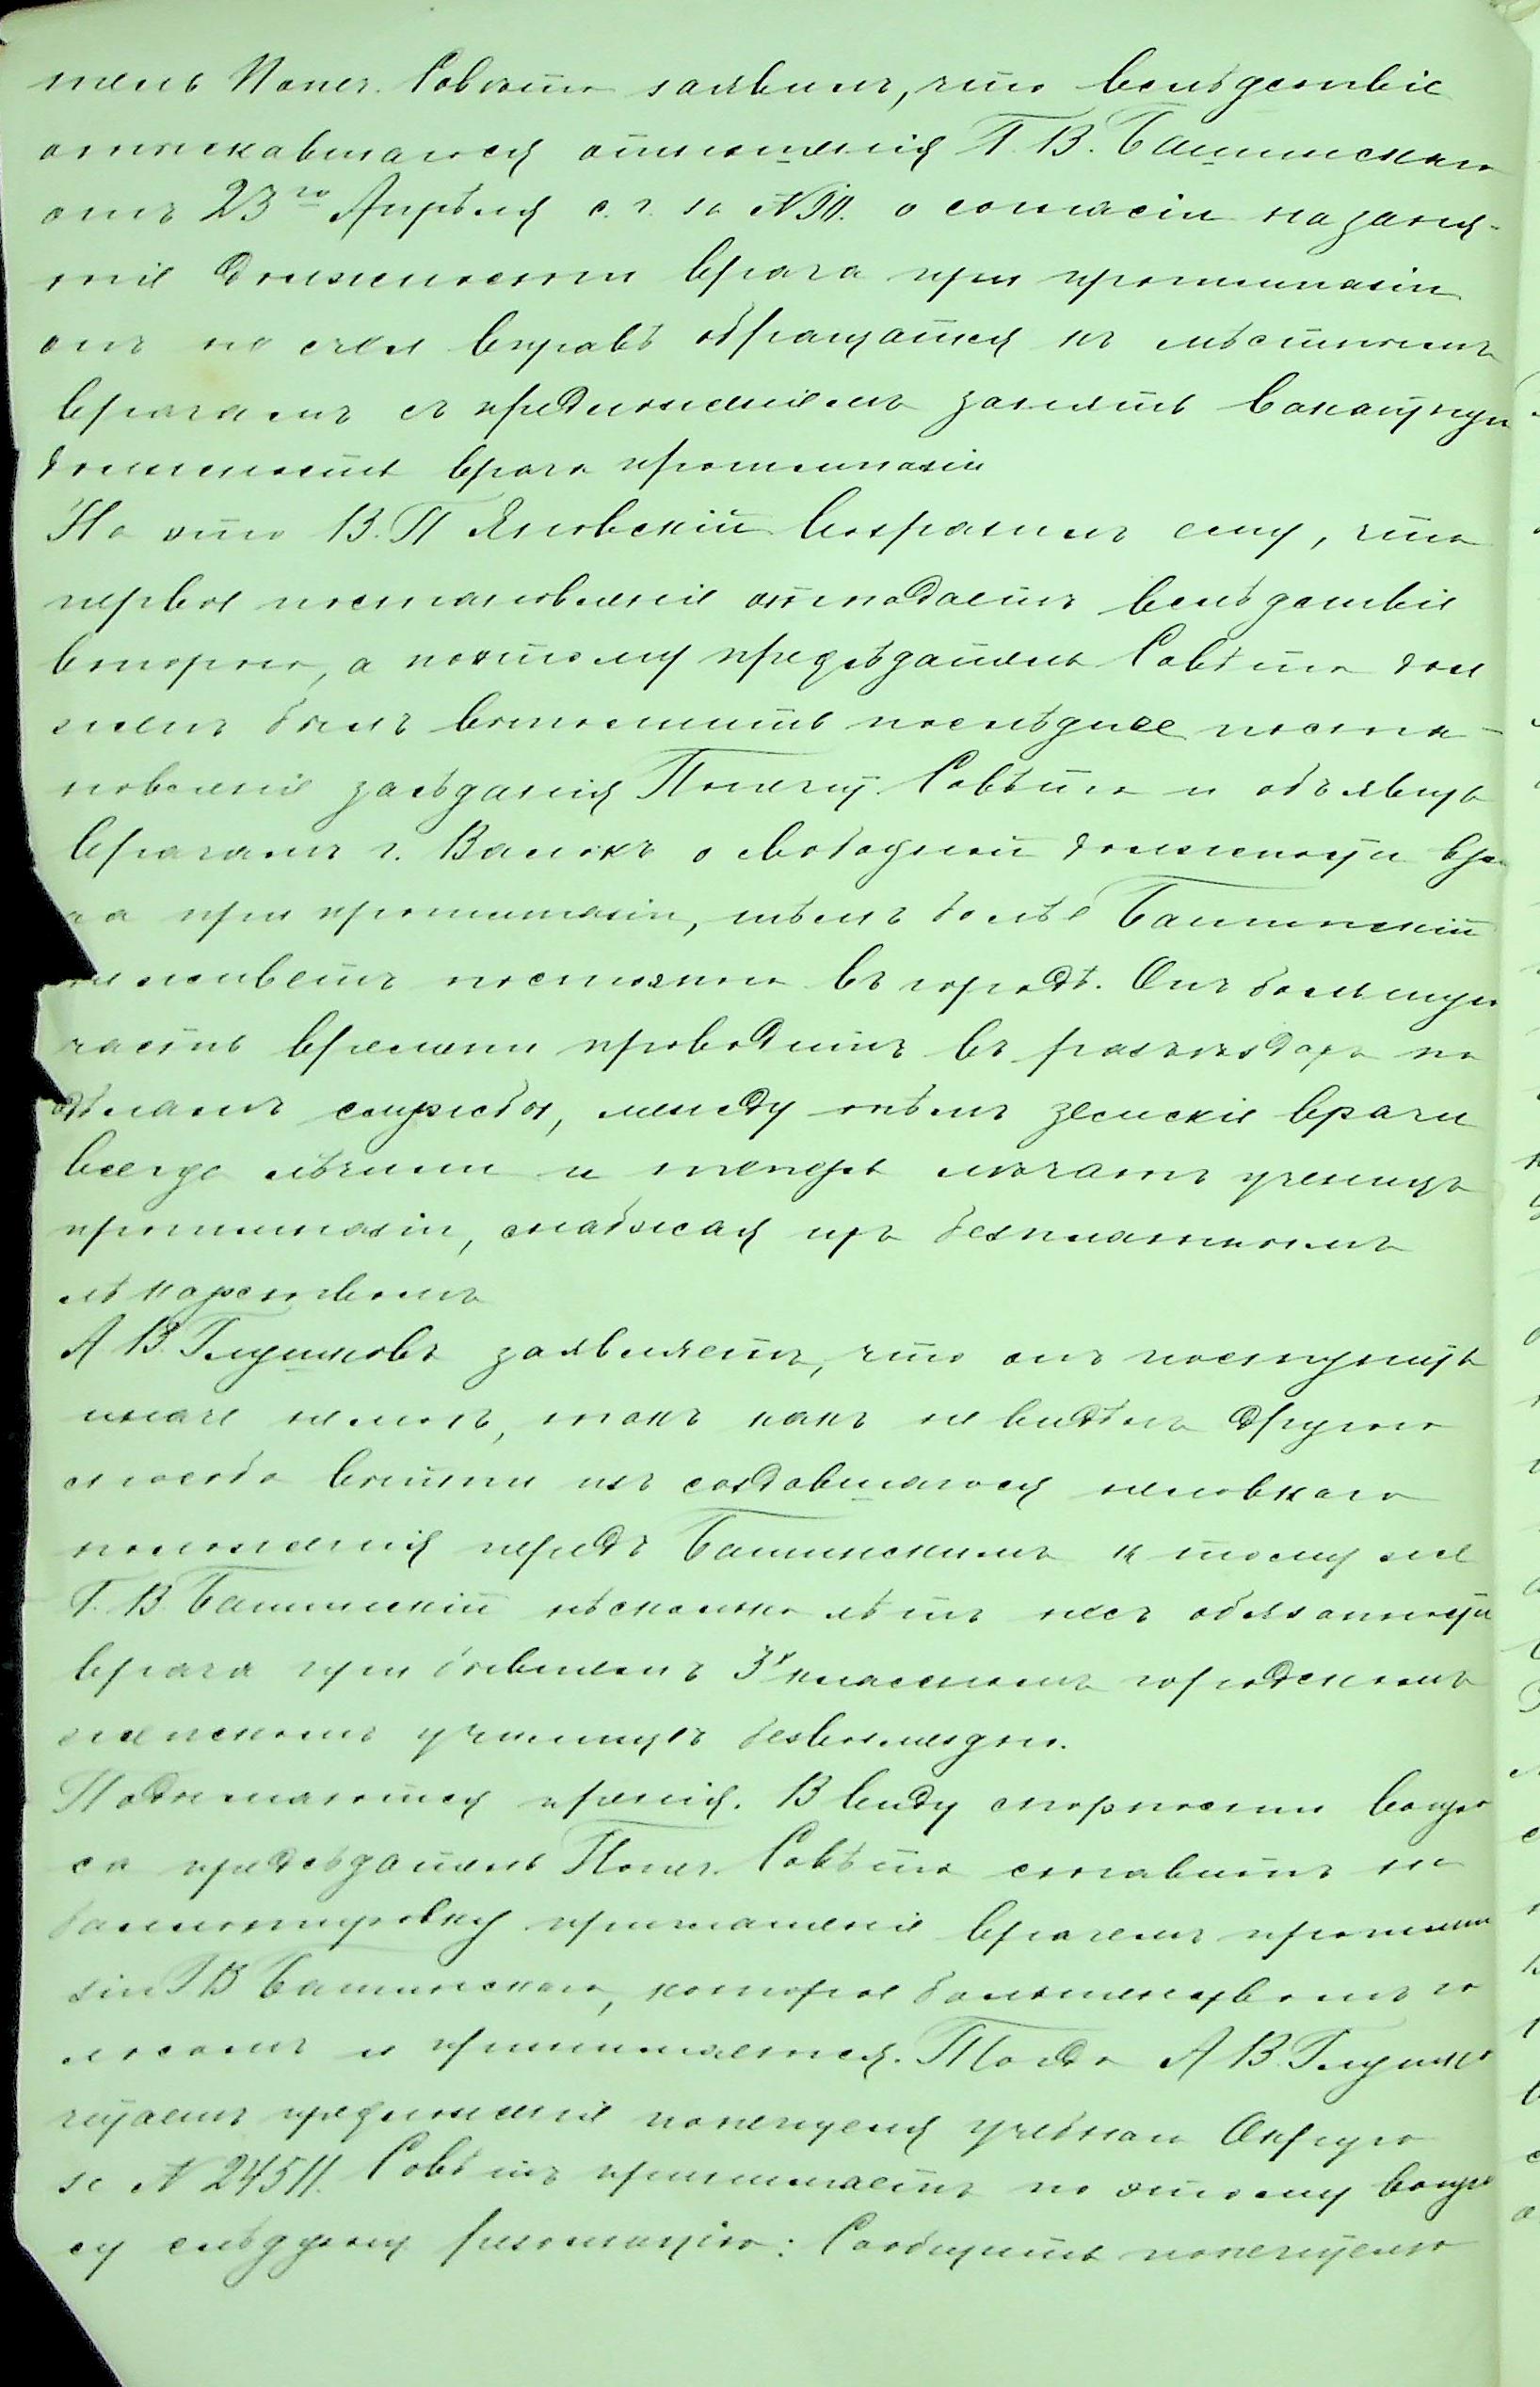 тель Попеч. Совѣта заявилъ, что вслѣдствіе
отыскавшагося отношенія Г. В. Башинскаго
отъ 23го Апрѣля с. г. за № о согласіи на заня-
тіе должности врача при прогимназіи
онъ не счелъ вправѣ обращаться къ мѣстнымъ
врачамъ съ предложеніемъ занять вакантную
должность врача прогимназіи
На это В. П Яновскій возразилъ ему, что
первое постановленіе отпадаетъ вслѣдствіе
второго, а поэтому предсѣдатель Совѣта дол
женъ былъ выполнить послѣднее поста-
новленіе засѣданія Попечит. Совѣта и объявить
врачамъ г. Валокъ о свободной должности вра
ча при прогимназіи, тѣмъ болѣе Башинскій
не живетъ постоянно въ городѣ. Онъ большую
часть времени проводитъ въ разъѣздахъ по
дѣламъ службы, между тѣмъ земскіе врачи
всегда лѣчили и теперь лѣчатъ учениц
прогимназіи, снабжая ихъ безплатнымъ
лѣкарствомъ
А В. Глушковъ заявляетъ, что онъ поступить
иначе не могъ, такъ какъ не видѣлъ другого
способа выйти изъ создавшагося неловкаго
положенія передъ Башинскимъ к тому же
Г. В. Башинскій нѣсколько лѣтъ несъ обязанности
врача при бывшемъ 3х классномъ городскомъ
женскомъ училищѣ безвозмездно.
Поднимаются пренія. В виду спорности вопро
са предсѣдатель Попеч. Совѣта ставитъ на
баллотировку приглашеніе врачемъ прогимна
зіи Г В Башинскаго, которое большинствомъ го
лосовъ и принимается. Тогда А В. Глушко
читаетъ предложеніе попечителя учебнаго Округа
за № 24511. Совѣтъ принимаетъ по этому вопро
су слѣдующ резолюцію: Сообщить попечителю